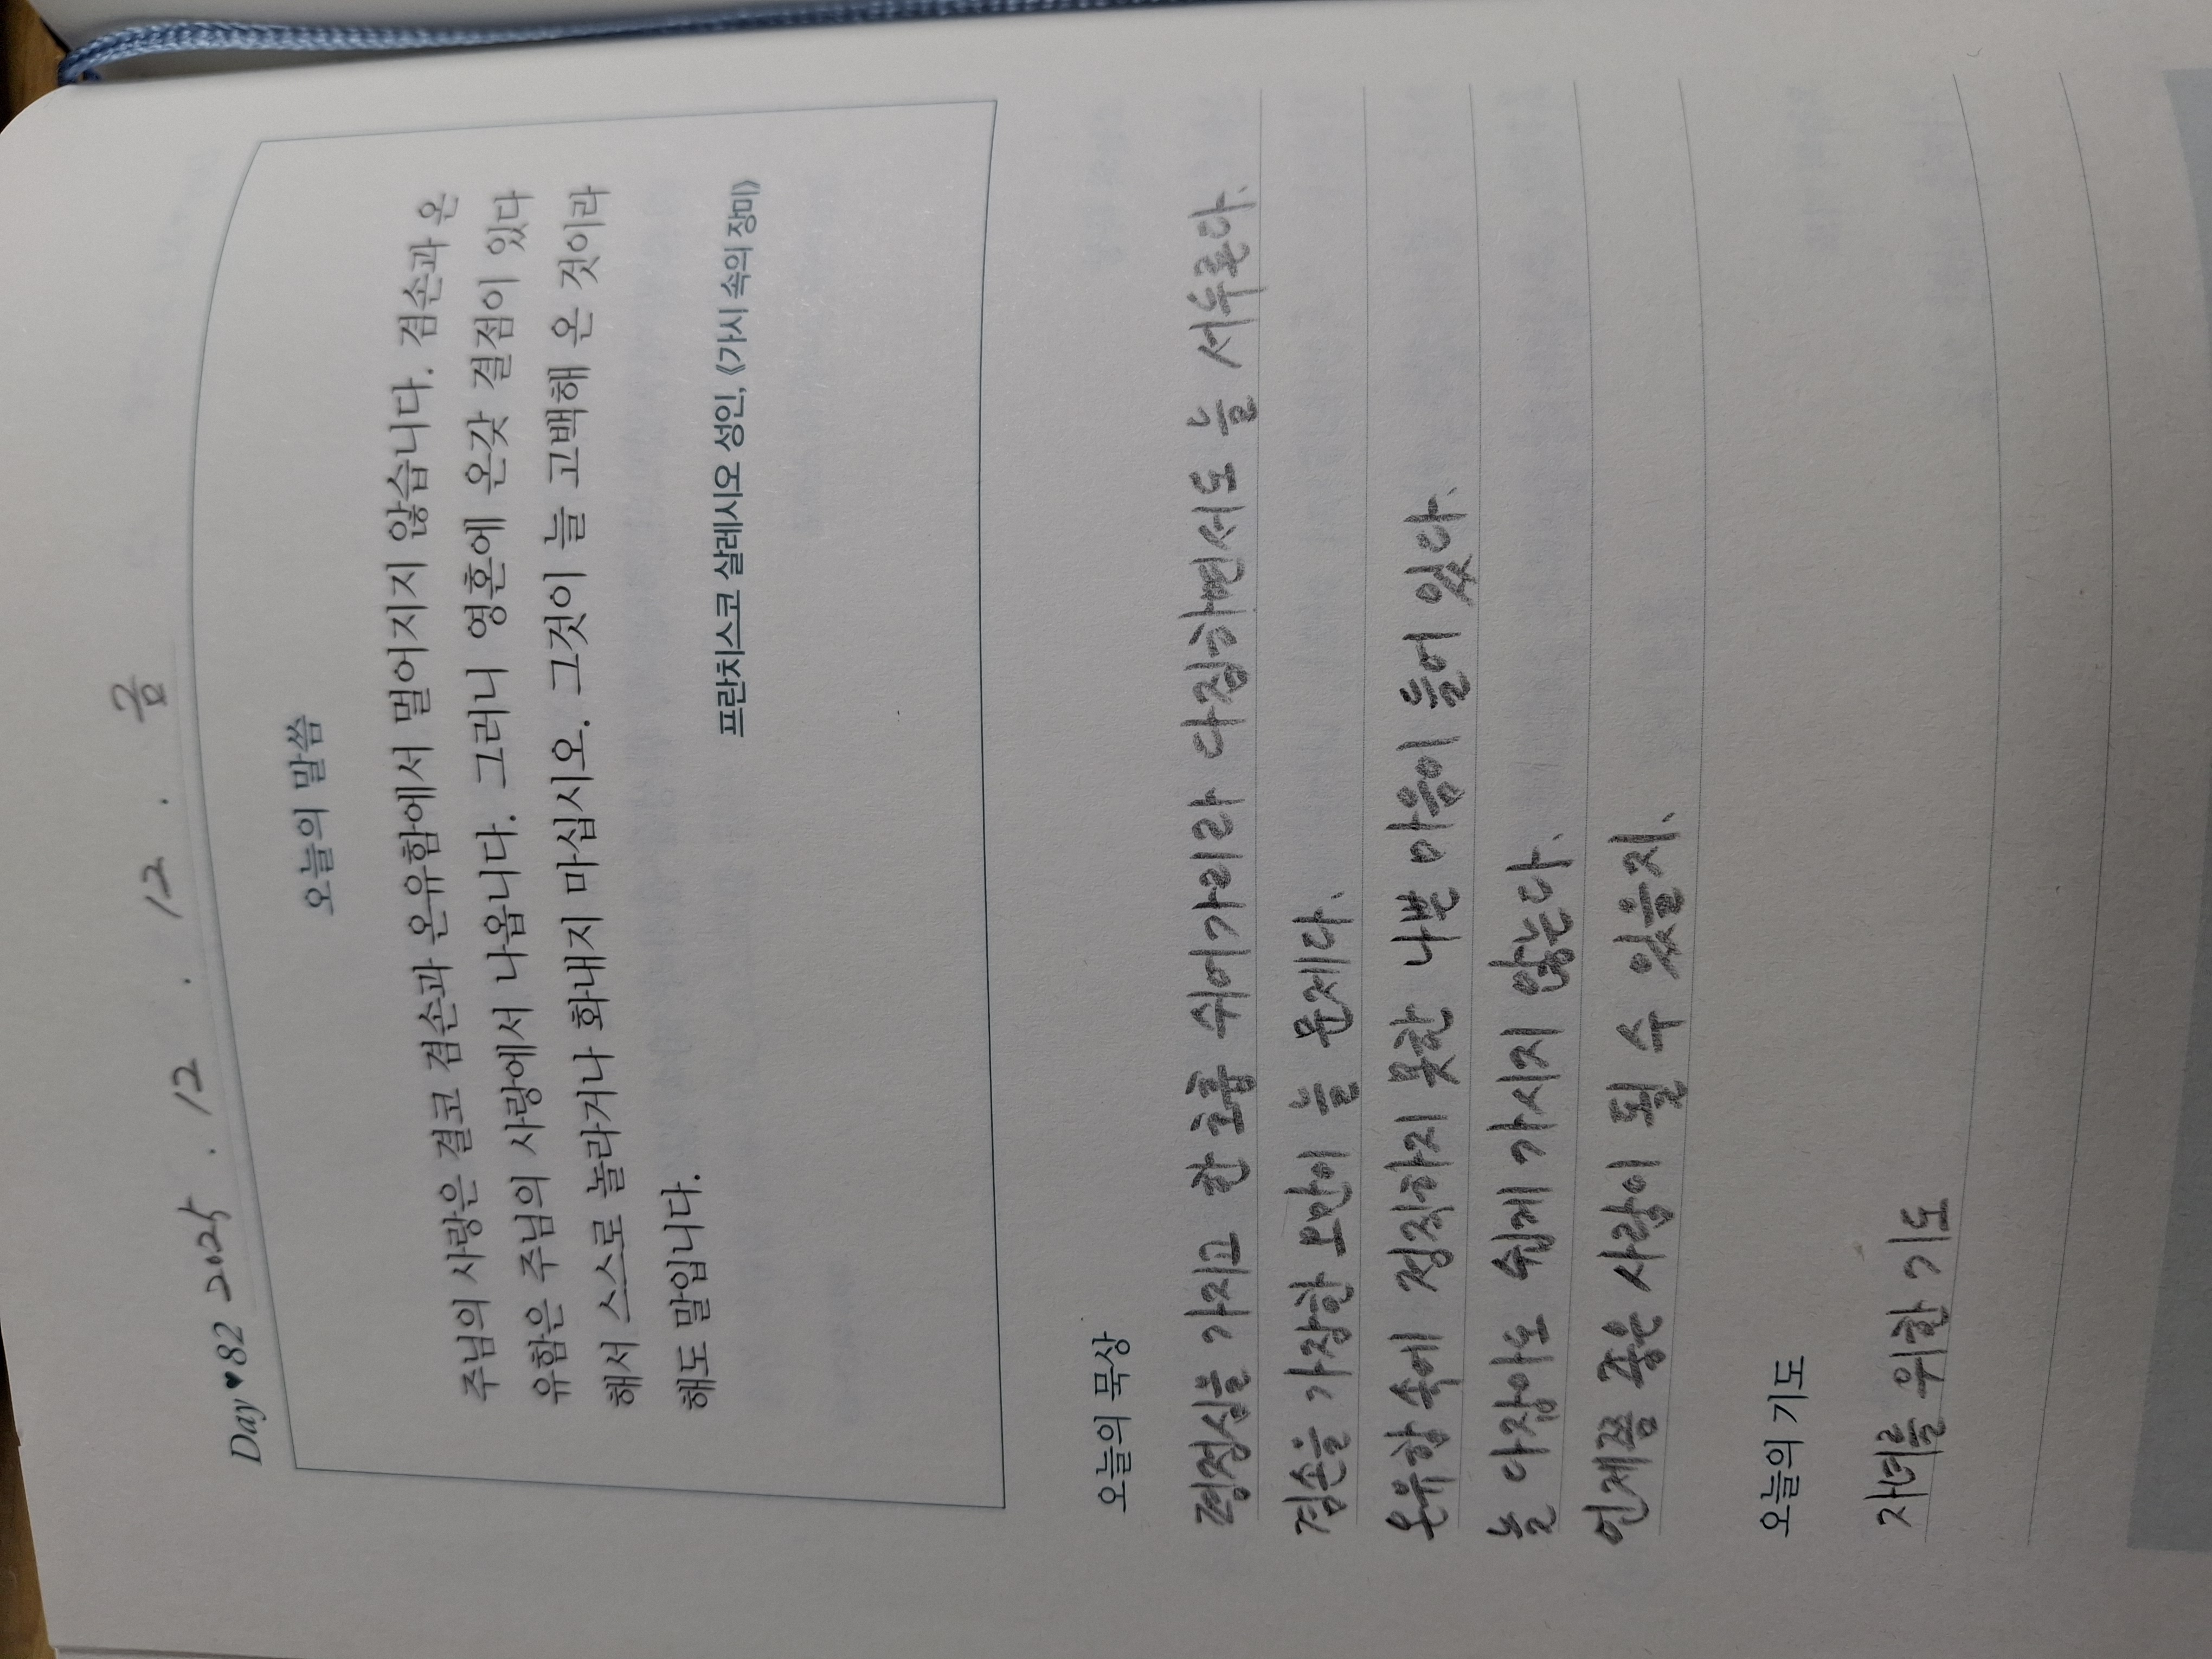 Day♥82 2025. 12. 12. 금
오늘의 말씀
주님의 사랑은 결코 겸손과 온유함에서 멀어지지 않습니다. 겸손과 온
유함은 주님의 사랑에서 나옵니다. 그러니 영혼에 온갖 결점이 있다
해서 스스로 놀라거나 화내지 마십시오. 그것이 늘 고백해 온 것이라
해도 말입니다.
프란치스코 살레시오 성인, 《가시 속의 장미》
오늘의 묵상
평정심을 가지고 한 호흡 쉬어가리라 다짐하면서도 늘 서두른다.
겸손을 가장한 오만이 늘 문제다.
온유함 속에 정직하지 못한 나쁜 마음이 들어 있다.
늘 다잡아도 쉽게 가시지 않는다.
언제쯤 좋은 사람이 될 수 있을지.
오늘의 기도
자녀를 위한 기도